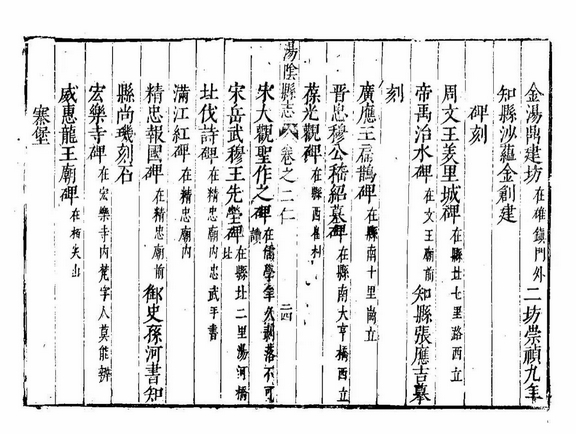 金湯鼎建坊 在碓鎮門外 二坊崇禎九年
知縣沙蘊金創建
碑刻
周文王羑里城碑 在縣北七里路西立
帝禹治水碑 在文王廟前 知縣張應吉摹
刻
廣應王扁鵲碑 在縣南十里崗立
晉忠穆公嵇紹墓碑 在縣南大亨橋西立
葆光觀碑 在縣西村
湯陰縣志 卷之二仁 二四
宋大觀聖作之碑 在儒學年久剥落不可讀
宋岳武穆王先塋碑 在縣北二里湯河橋北
北伐詩碑 在精忠廟内忠武手書
滿江紅碑 在精忠廟内
精忠報國碑 在精忠廟前 御史孫河書知
縣尚璣刻石
宏樂寺碑 在宏樂寺内梵字人莫能辨
威惠龍王廟碑 在尖山
寨堡